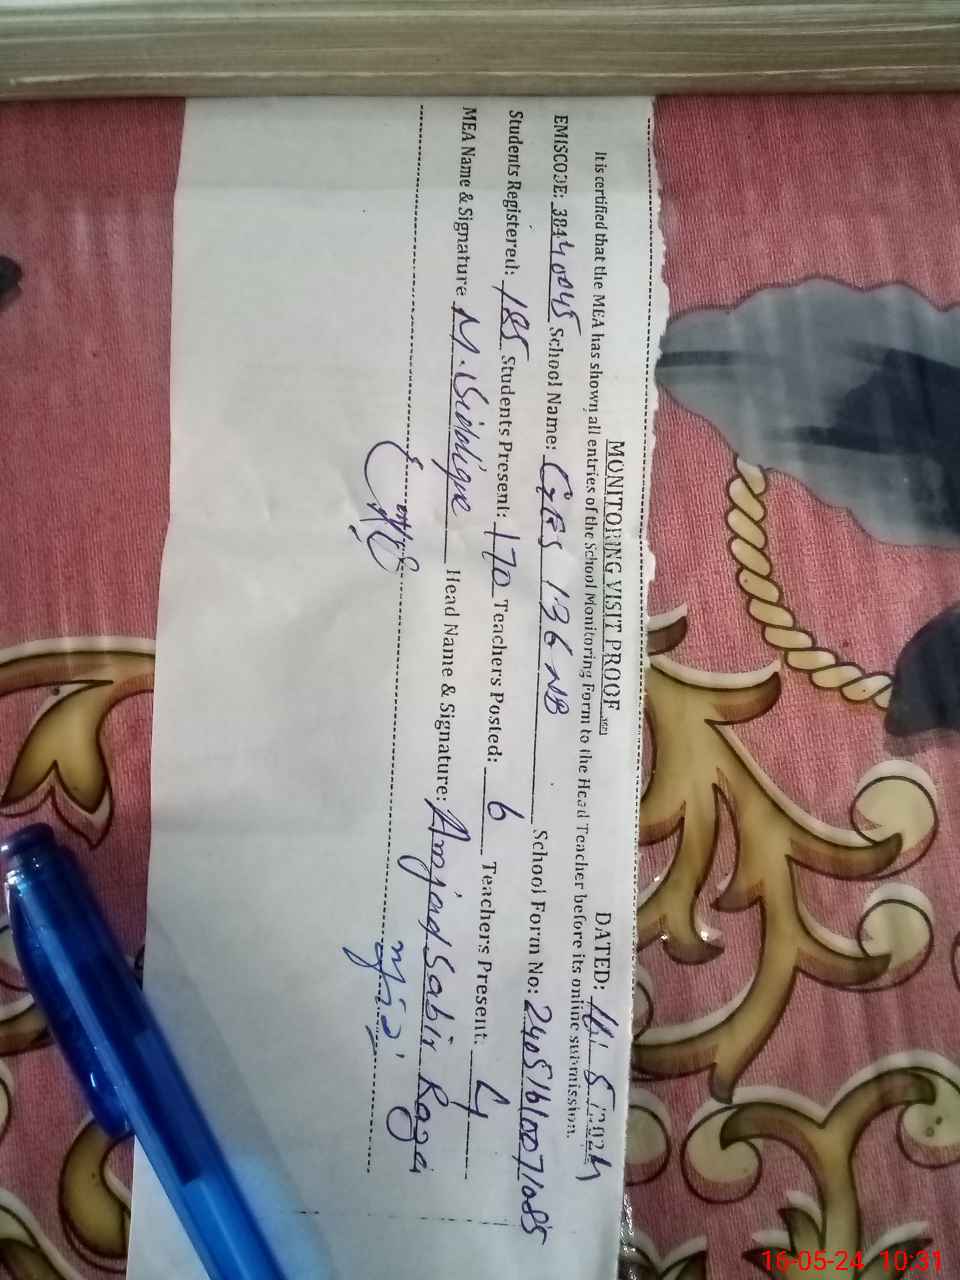 MONITORING VISIT PROOF
DATED: 16.5.2024
It is certified that the MEA has shown all entries of the School Monitoring Form to the Head Teacher before its online submission.
EMISCODE: 38440045 School Name: GES 136 NB School Form No:
Students Registered: 185 Students Present: 170 Teachers Posted: 6 Teachers Present: 4
MEA Name & Signature M. Siddique Head Name & Signature: Amjad Sabir Razai
16-05-24 10:31